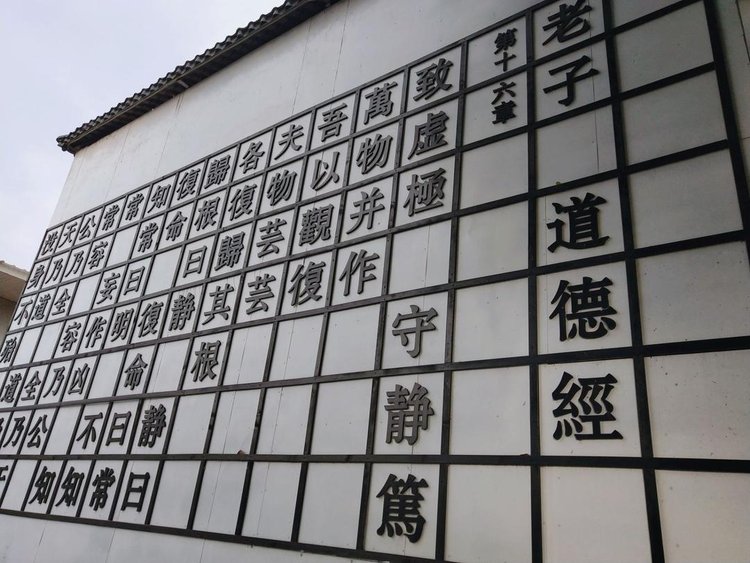 老子 道德經
第十六章
致虛極 守静篤
萬物并作
吾以觀復
夫物芸芸
各復歸其根
歸根曰静 静曰
復命 復命曰常
知常曰明 不知
常 妄作凶 知
常容 容乃公
公乃全 全乃天
天乃道 道乃
没身不殆